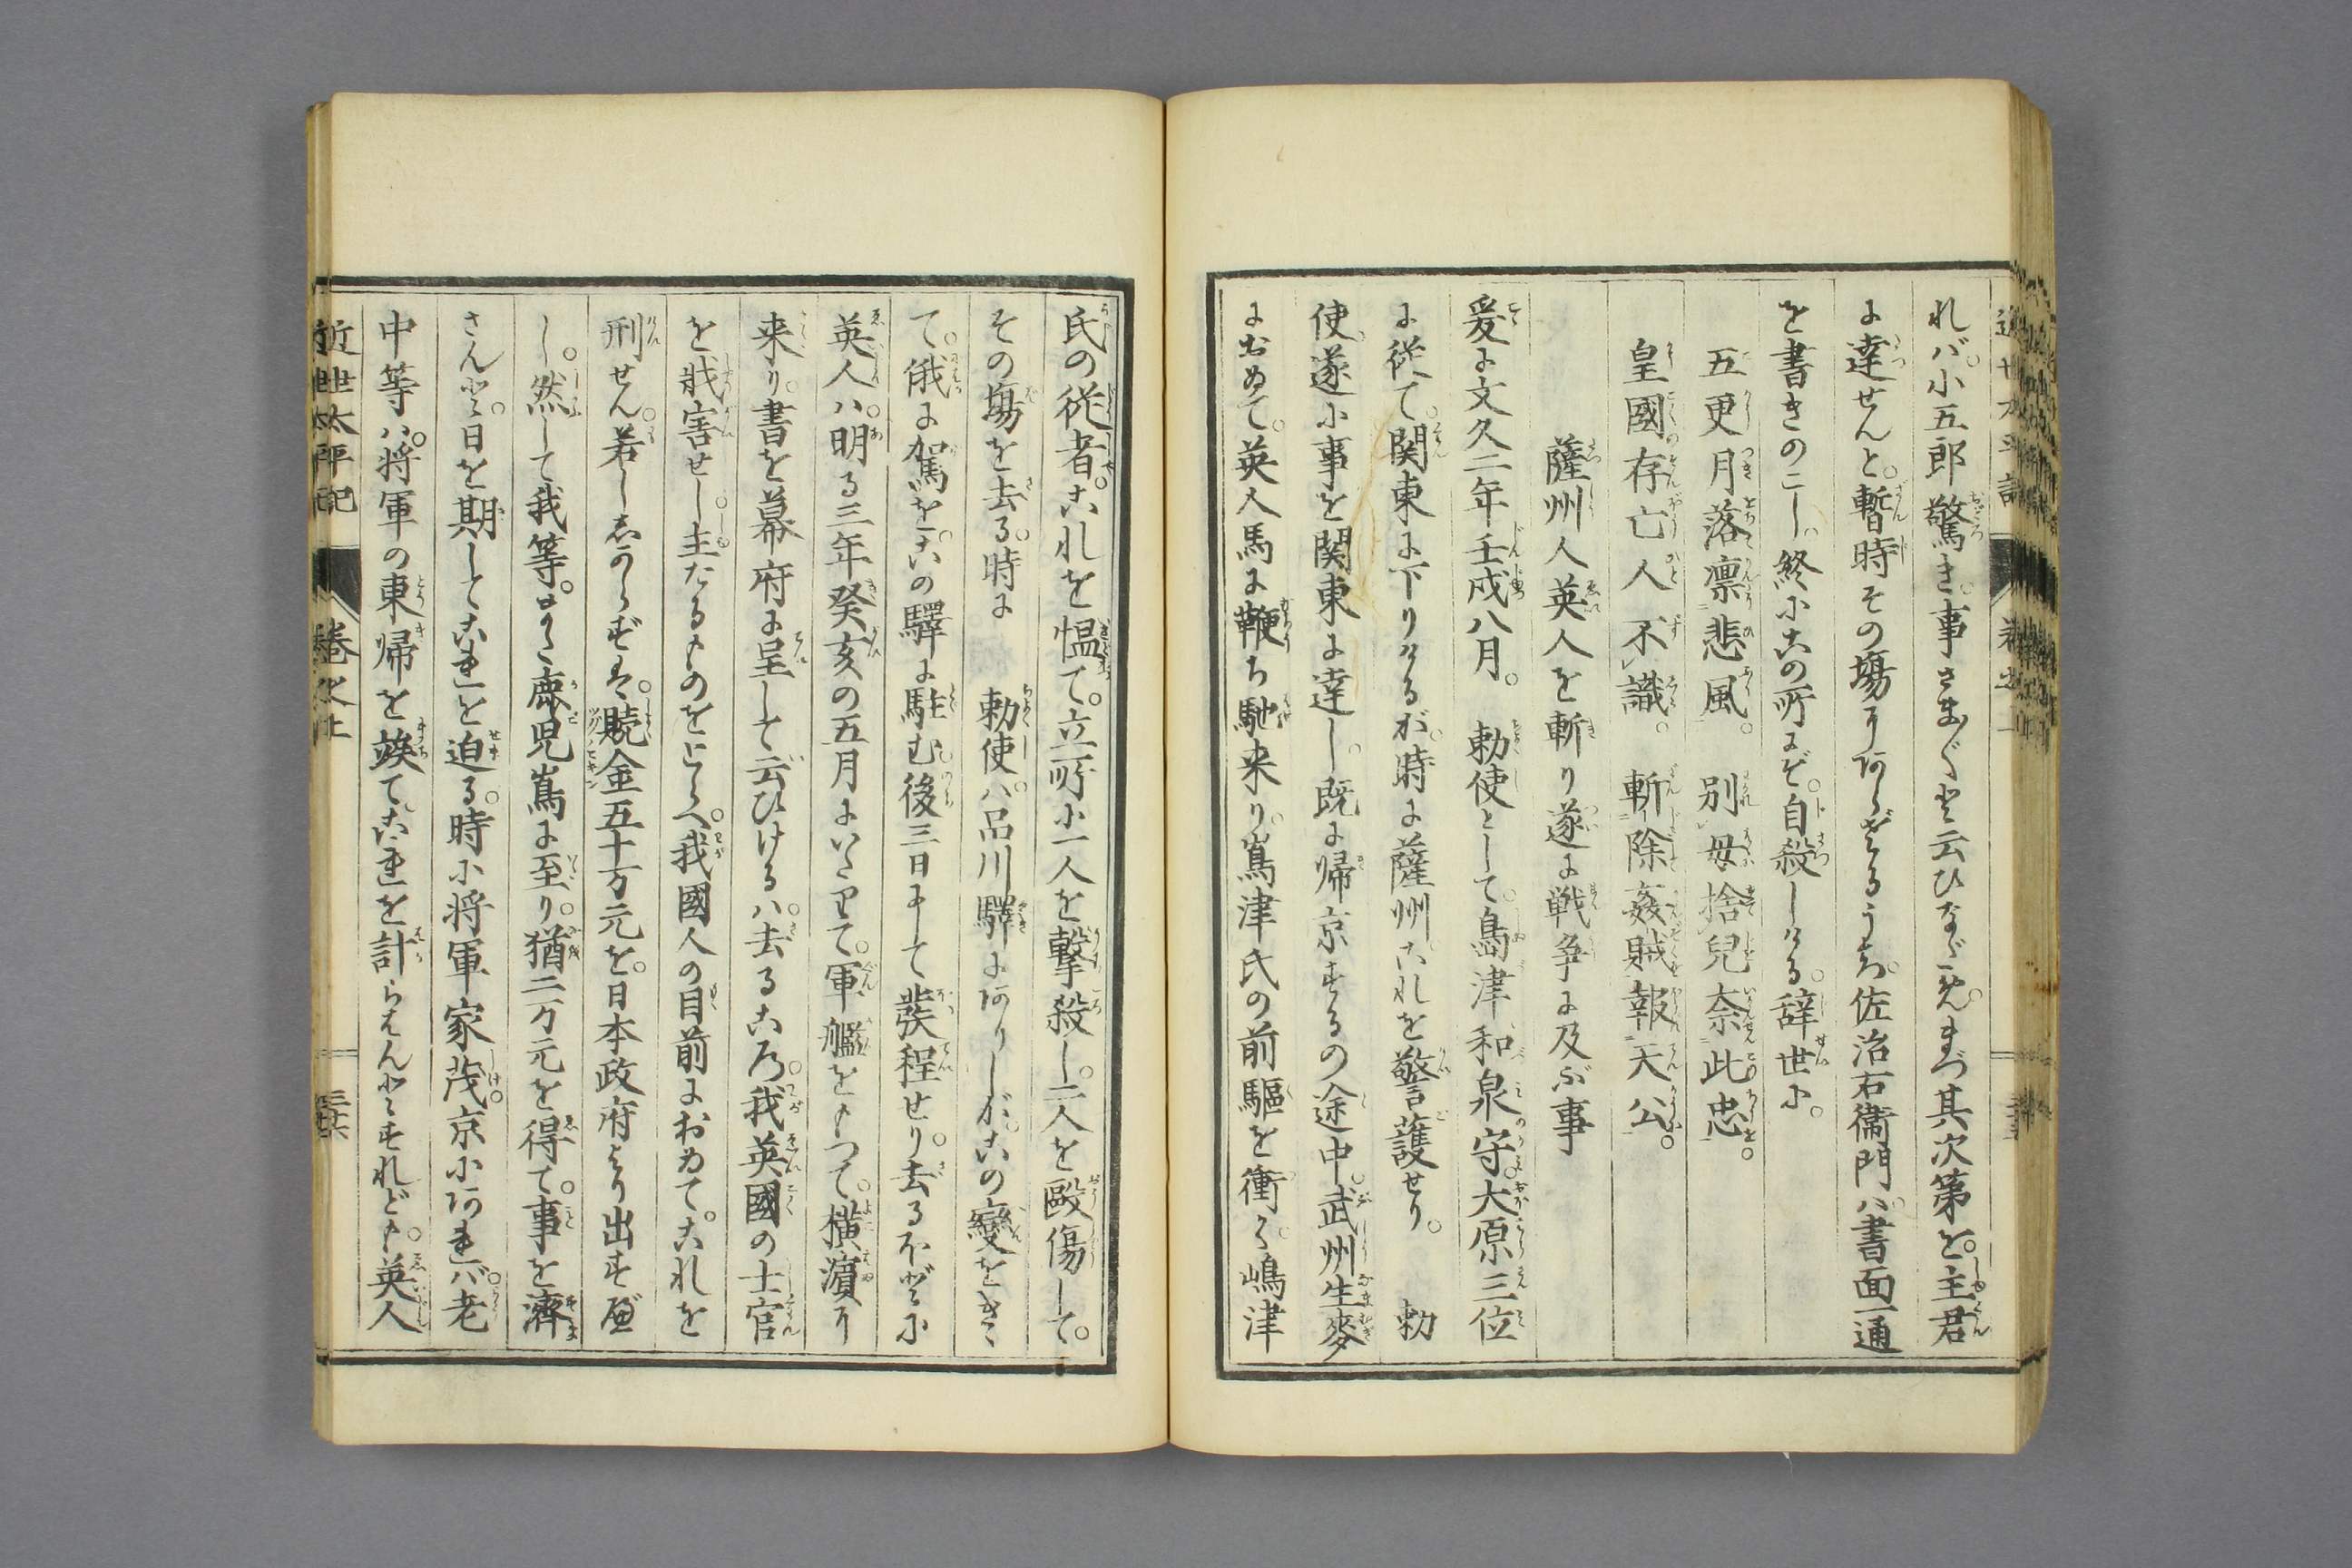 れバ小五郎驚き事さまぐと云ひなだめまづ其次第を主君
に達せんと暫時その場にあらざるうち佐治右衞門ハ書面一通
を書きのこし終に此の所にて自殺しける辞世に
五更月落凛悲風 別母捨兒奈此忠
皇國存亡人不識 斬除姦賊報天公
薩州人英人を斬り遂に戦争に及ぶ事
爰に文久二年壬戌八月 勅使として嶌津和泉守大原三位
に従て関東に下りけるが時に薩州これを警護せり 勅
使遂に事を関東に達し既に帰京するの途中武州生麥
におゐて英人馬に鞭ち馳来り嶌津氏の前驅を衝く嶋津
氏の従者これを愠て立所に一人を撃殺し二人を毆傷して
その場を去る時に 勅使ハ品川驛にありしがこの變をきゝ
て俄に駕をこの驛に駐む後三日にして発程せり去るほどに
英人ハ明る三年癸亥の五月にいたりて軍艦をもつて横濵に
来り書を幕府に呈して云ひけるハ去るころ我英國の士官
を戕害せし主たるものをとらへ我國人の目前におゐてこれを
刑せん若ししからずは贖金五十万元を日本政府より出すべ
し然して我等また鹿児嶌に至り猶二万元を得て事を濟
さんと日を期してこれを迫る時に将軍家茂京にあれバ老
中等ハ将軍の東帰を竢てこれを計らはんとすれども英人
近世太平記 巻之上